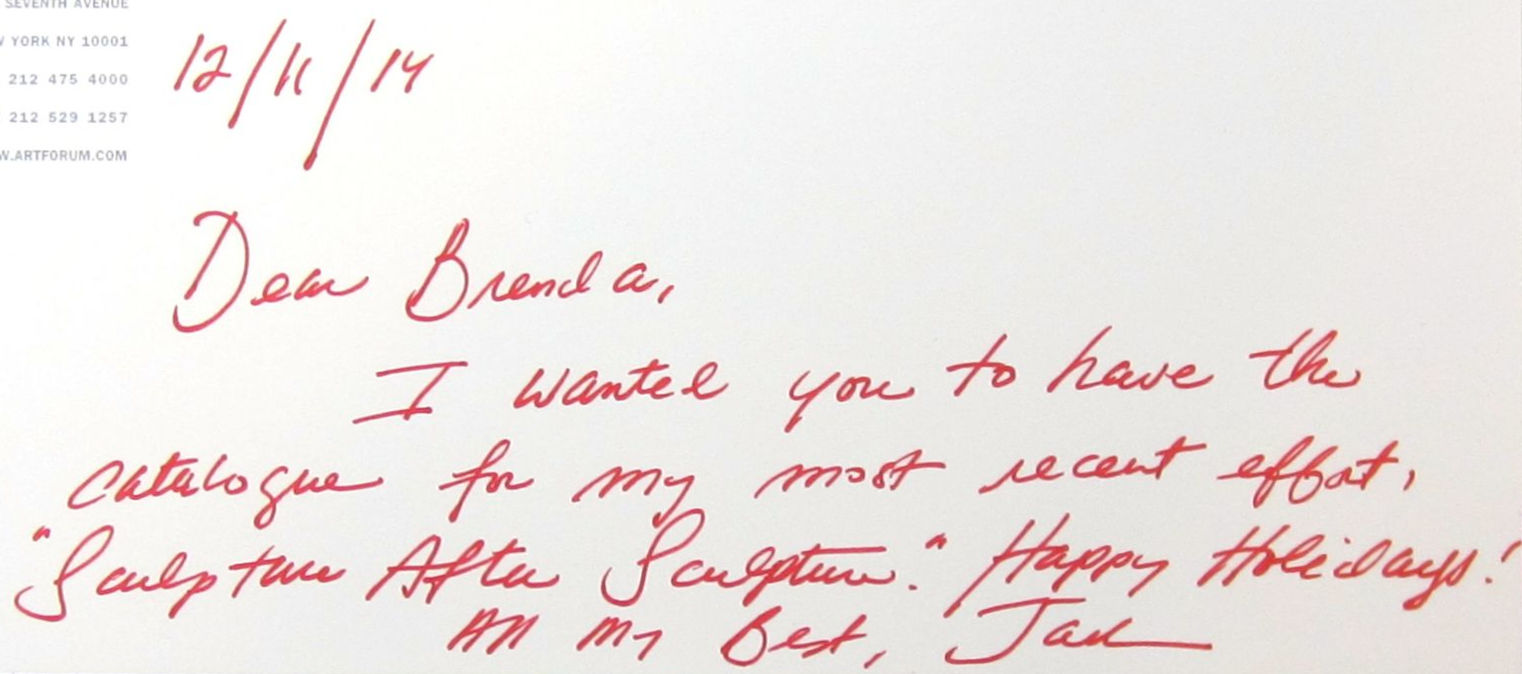 SEVENTH AVENUE
YORK NY 10001
212 475 4000
212 529 1257
W.ARTFORUM.COM
12/11/14
Dear Brenda,
I wanted you to have the
catalogue for my most recent effort,
"Sculpture After Sculpture." Happy Holidays!
All My Best, Jack